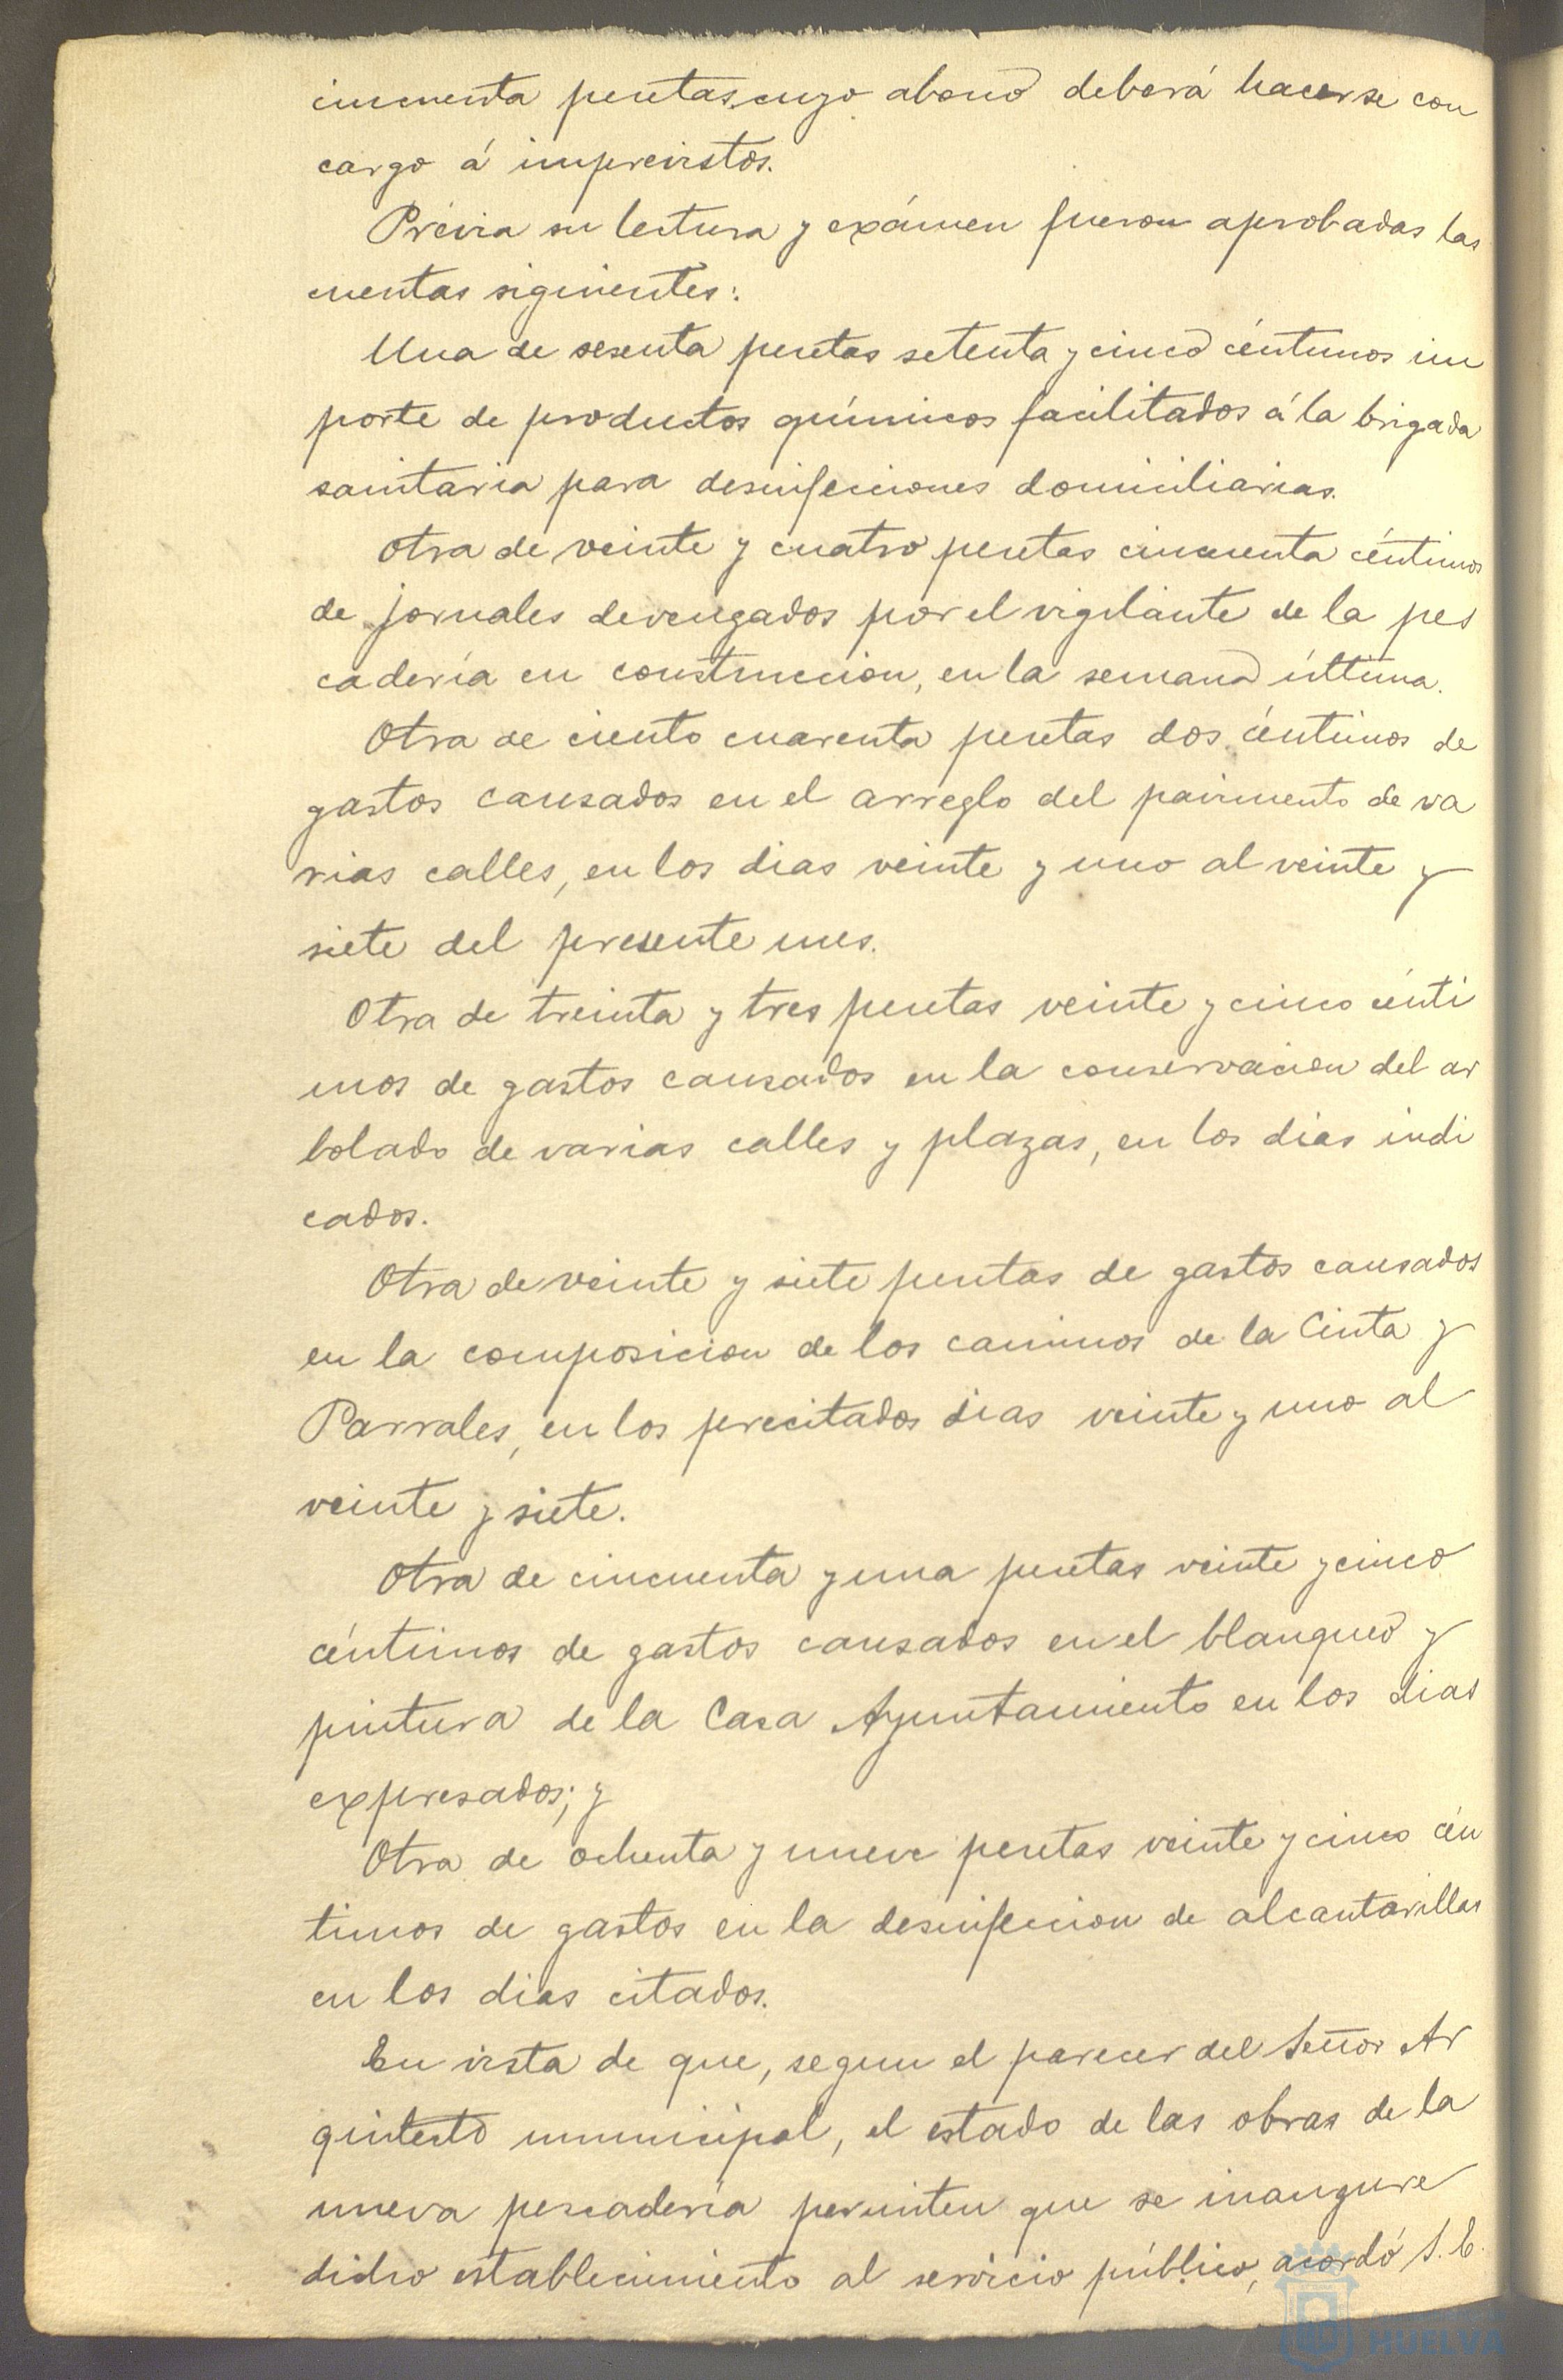 cincuenta pesetas, cuyo abono deberá hacerse con
cargo á imprevistos.
Prévia su lectura y exámen fueron aprobadas las
cuentas siguientes:
Una de sesenta pesetas setenta y cinco céntimos im
porte de productos químicos facilitados á la brigada
sanitaria para desinfecciones domiciliarias.
Otra de veinte y cuatro pesetas cincuenta céntimos
de jornales devengados por el vigilante de la pes
cadería en construccion, en la semana última.
Otra de ciento cuarenta pesetas dos céntimos de
gastos causados en el arreglo del pavimento de va
rias calles, en los dias veinte y uno al veinte y
siete del presente mes.
Otra de treinta y tres pesetas veinte y cinco cénti
mos de gastos causados en la conservacion del ar
bolado de varias calles y plazas, en los dias indi
cados.
Otra de veinte y siete pesetas de gastos causados
en la composicion de los caminos de la Cinta y
Parrales, en los precitados dias veinte y uno al
veinte y siete.
Otra de cincuenta y una pesetas veinte y cinco
céntimos de gastos causados en el blanqueo y
pintura de la Casa Ayuntamiento en los dias
expresados; y
Otra de ochenta y nueve pesetas veinte y cinco cén
timos de gastos en la desinfeccion de alcantarillas
en los dias citados.
En vista de que, segun el parecer del Señor Ar
quitecto municipal, el estado de las obras de la
nueva pescadería permiten que se inaugure
dicho establecimiento al servicio público, acordó S. E.
HUELVA